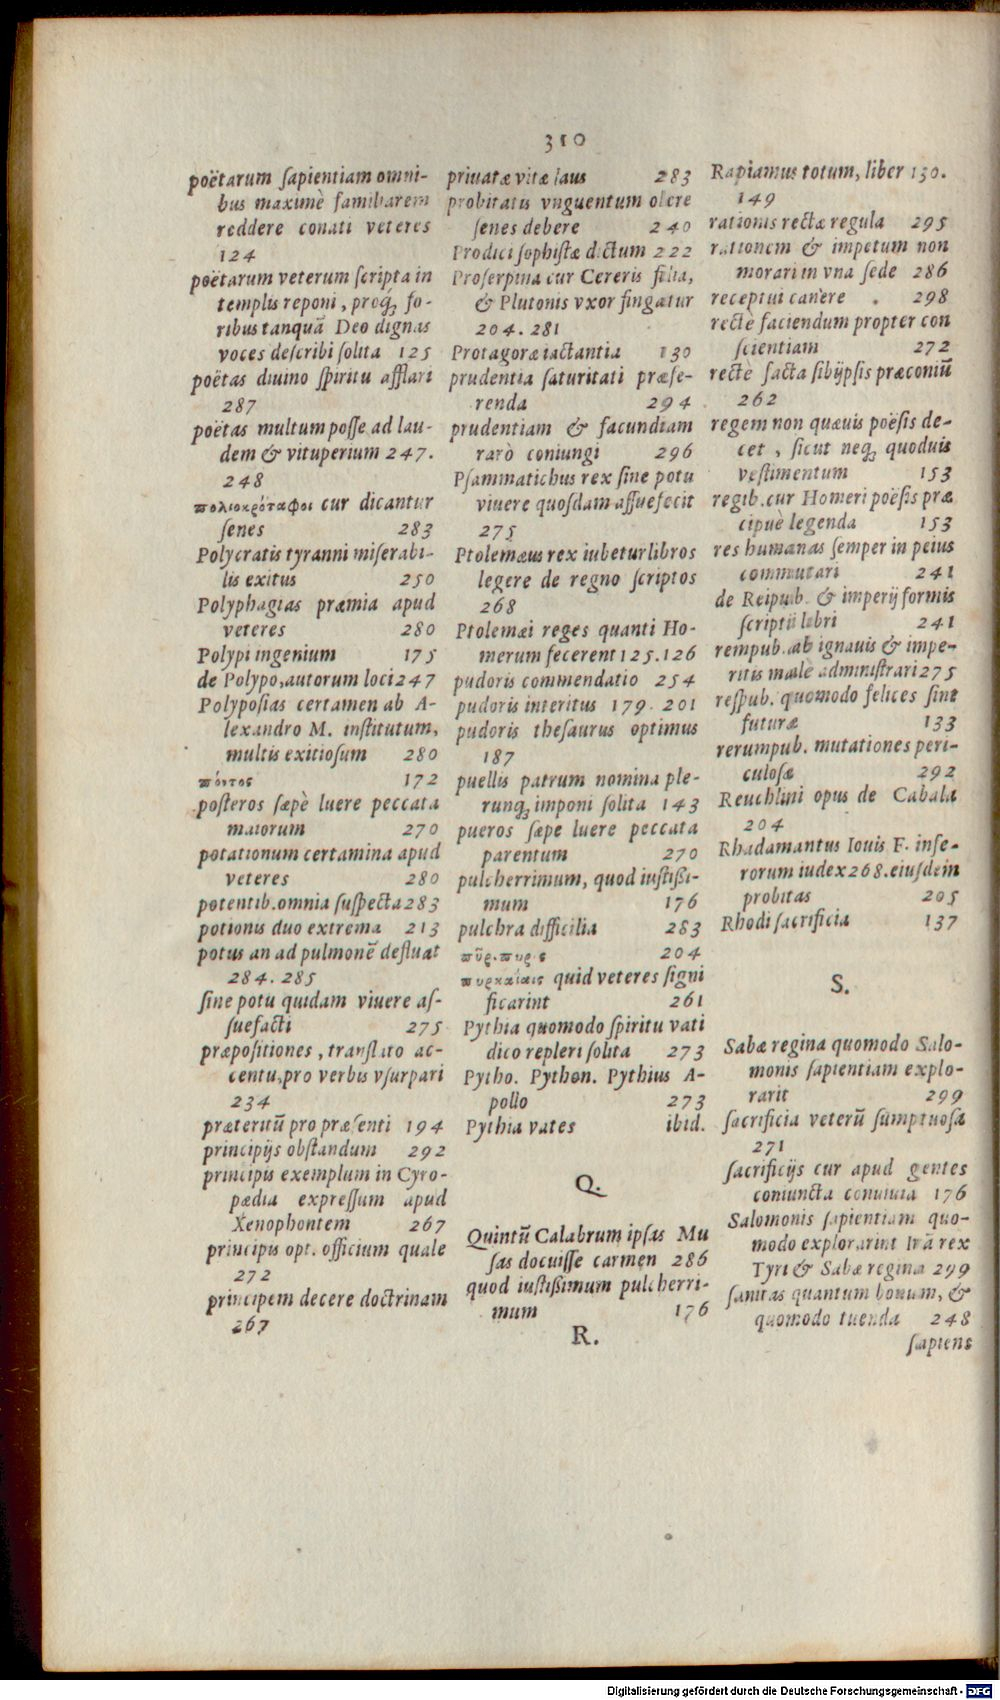 310
poëtarum ſapientiam omni-
bus maximè familiarem
reddere conati veteres
124
poëtarum veterum ſcripta in
templis reponi, proq́; fo-
ribus tanquā Deo dignas
voces deſcribi ſolita 125
poëtas diuino ſpiritu afflari
287
poëtas multum poſſe ad lau-
dem & vituperium 247.
248
πολιοκρόταφοι cur dicantur
ſenes 283
Polycratis tyranni miſerabi-
lis exitus 250
Polyphagias præmia apud
veteres 280
Polypi ingenium 175
de Polypo, autorum loci 247
Polyposias certamen ab A-
lexandro M. inſtitutum,
multis exitioſum 280
πόντος 172
poſteros ſæpè luere peccata
maiorum 270
potationum certamina apud
veteres 280
potentib. omnia ſuſpecta 283
potionis duo extrema 213
potus an ad pulmonē defluat
284. 285
ſine potu quidam viuere aſ-
ſuefacti 275
præpoſitiones, tranſlato ac-
centu, pro verbis vſurpari
234
præteritū pro præſenti 194
principijs obſtandum 292
principis exemplum in Cyro-
pædia expreſſum apud
Xenophontem 267
principis opt. officium quale
272
principem decere doctrinam
267
priuatæ vitæ laus 283
probitatis vnguentum olere
ſenes debere 240
Prodici ſophiſtæ dictum 222
Proſerpina cur Cereris filia,
& Plutonis vxor fingatur
204. 281
Protagoræ iactantia 130
prudentia ſaturitati præfe-
renda 294
prudentiam & facundiam
rarò coniungi 296
Pſammatichus rex ſine potu
viuere quoſdam aſſuefecit
275
Ptolemæus rex iubetur libros
legere de regno ſcriptos
268
Ptolemæi reges quanti Ho-
merum fecerent 125. 126
pudoris commendatio 254
pudoris interitus 179. 201
pudoris theſaurus optimus
187
puellis patrum nomina ple-
runq; imponi ſolita 143
pueros ſæpe luere peccata
parentum 270
pulcherrimum, quod iuſtißi-
mum 176
pulchra difficilia 283
πῦρ. πυρὸς 204
πυρκαίαις quid veteres ſigni
ficarint 261
Pythia quomodo ſpiritu vati
dico repleri ſolita 273
Pytho. Python. Pythius A-
pollo 273
Pythia vates ibid.
Q.
Quintū Calabrum ipſas Mu
ſas docuiſſe carmen 286
quod iuſtißimum pulcherri-
mum 176
R.
Rapiamus totum, liber 130.
149
rationis rectæ regula 295
rationem & impetum non
morari in vna ſede 286
receptui canere 298
rectè faciendum propter con
ſcientiam 272
rectè facta ſibijpſis præconiū
262
regem non quæuis poëſis de-
cet, ſicut neq; quoduis
veſtimentum 153
regib. cur Homeri poëſis præ
cipuè legenda 153
res humanas ſemper in peius
commutari 241
de Reipub. & imperij formis
ſcripti libri 241
rempub. ab ignauis & impe-
ritis male adminiſtrari 275
reſpub. quomodo felices ſint
futuræ 133
rerumpub. mutationes peri-
culoſæ 292
Reuchlini opus de Cabala
204
Rhadamantus Iouis F. infe-
rorum iudex 268. eiuſdem
probitas 205
Rhodi ſacrificia 137
S.
Sabæ regina quomodo Salo-
monis ſapientiam explo-
rarit 299
ſacrificia veterū ſumptuoſa
271
ſacrificijs cur apud gentes
coniuncta conuiuia 176
Salomonis ſapientiam quo-
modo explorarint Irā rex
Tyri & Sabæ regina 299
ſanitas quantum bonum, &
quomodo tuenda 248
ſapiens
Digitalisierung gefördert durch die Deutsche Forschungsgemeinschaft - DFG